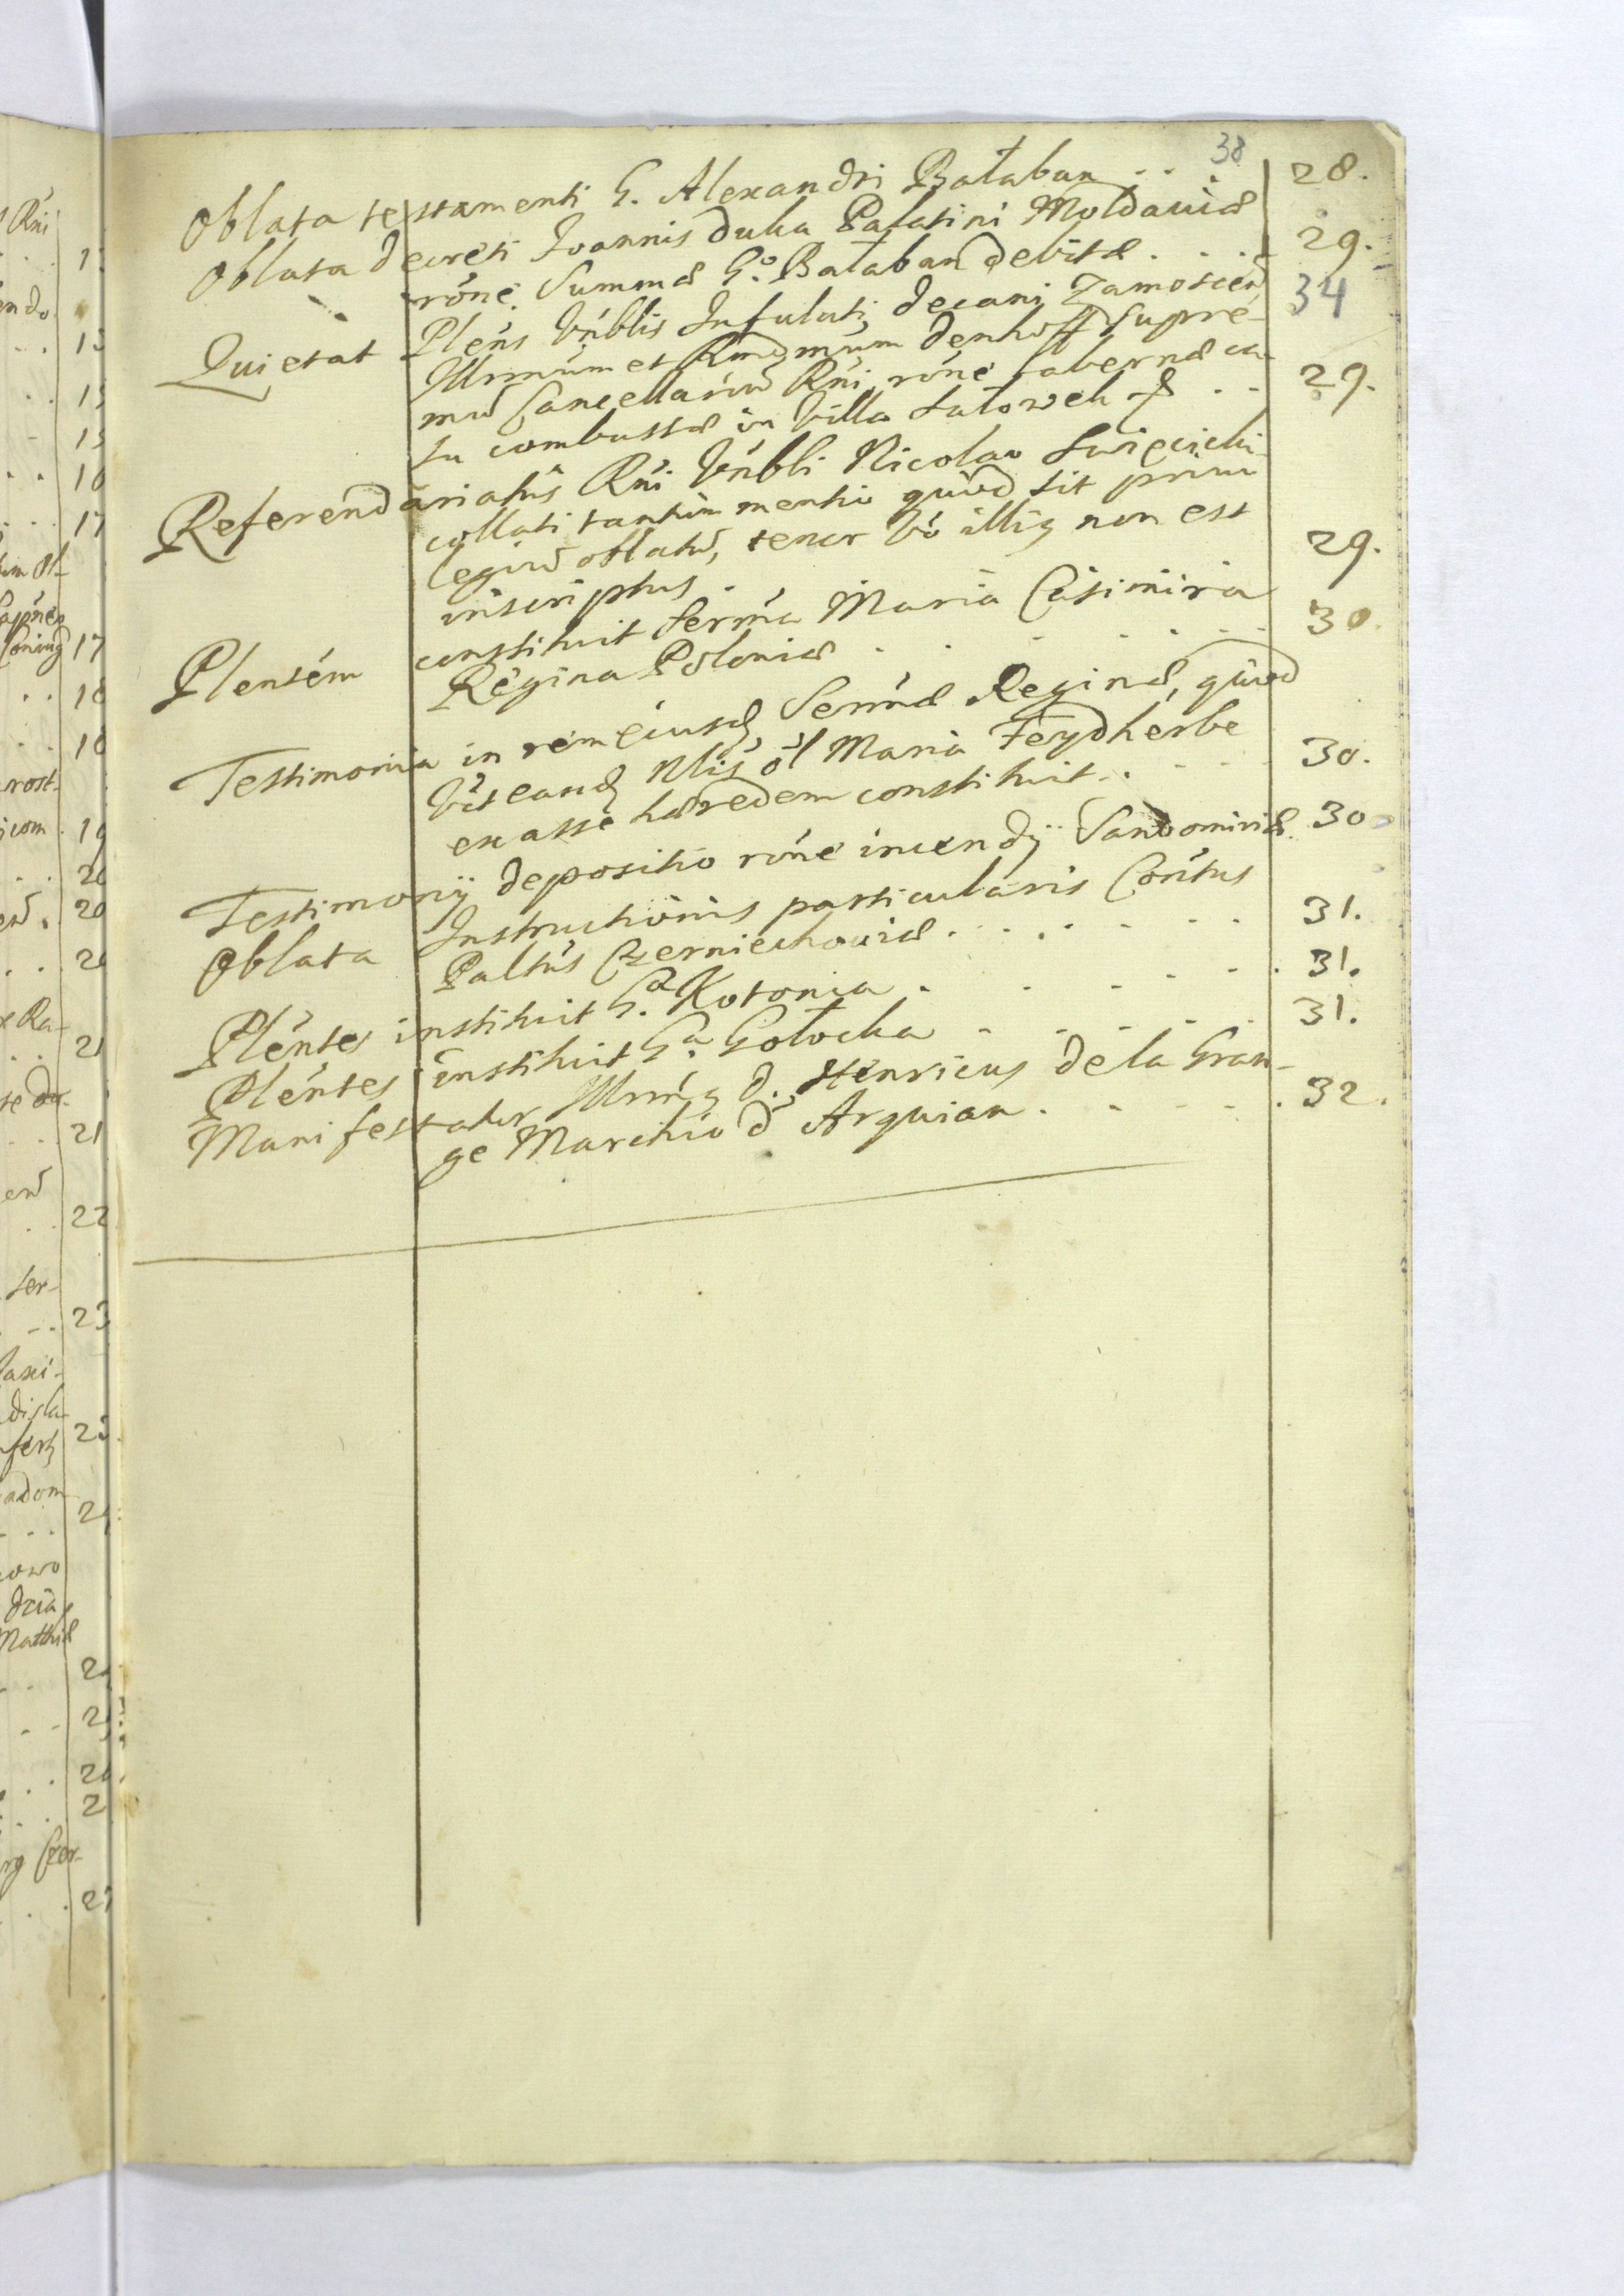 38
Oblata testamenti G. Alexandri Bałaban . . . 28.
Oblata decreti Joannis Duka Palatini Moldaviæ
rone. Summæ Go. Bałaban debitæ . . . . 29.
34
Quietat Plens Vnblis Infulati Decani Zamoscen
Illrmum et Rndmum Denhoff Supre-
mu Cancellariu Rni, rone tabernæ ca-
su combustæ in Villa . . 29.
Referendariatus Rni Vnbli Nicolao Swięcicki
collati tantum mentio quod sit privi
legiu oblatu, tenor vo illig non est
inscriptus . 29.
Plentem constituit Serma Maria Casimira
Regina Poloniæ . . . . . . . 30.
Testimonia in rem eiusd, Sermæ Reginæ, quod
Maria Feydherbe
ex asse hæredem constituit . . . . 30.
Testimonij depositio rone incendij Sandomiriæ. 30
Oblata Instructionis particularis Contus
Paltus Czerniechoviæ . . . . . . . 31.
Plentes instituit Ga. Kotonia . . . . . 31.
Plentes instituit Ga. Gołocka . . . . . 31.
Manifestatur Illrmg D. Henricus de la Gran-
ge Marchio d' Arquian . . . . . 32.
Rni
ndo
15
15
16
17
17
18
18
rost.
icom. 19
20
20
20
21
21
22
ser-
23
adom
Matthiæ